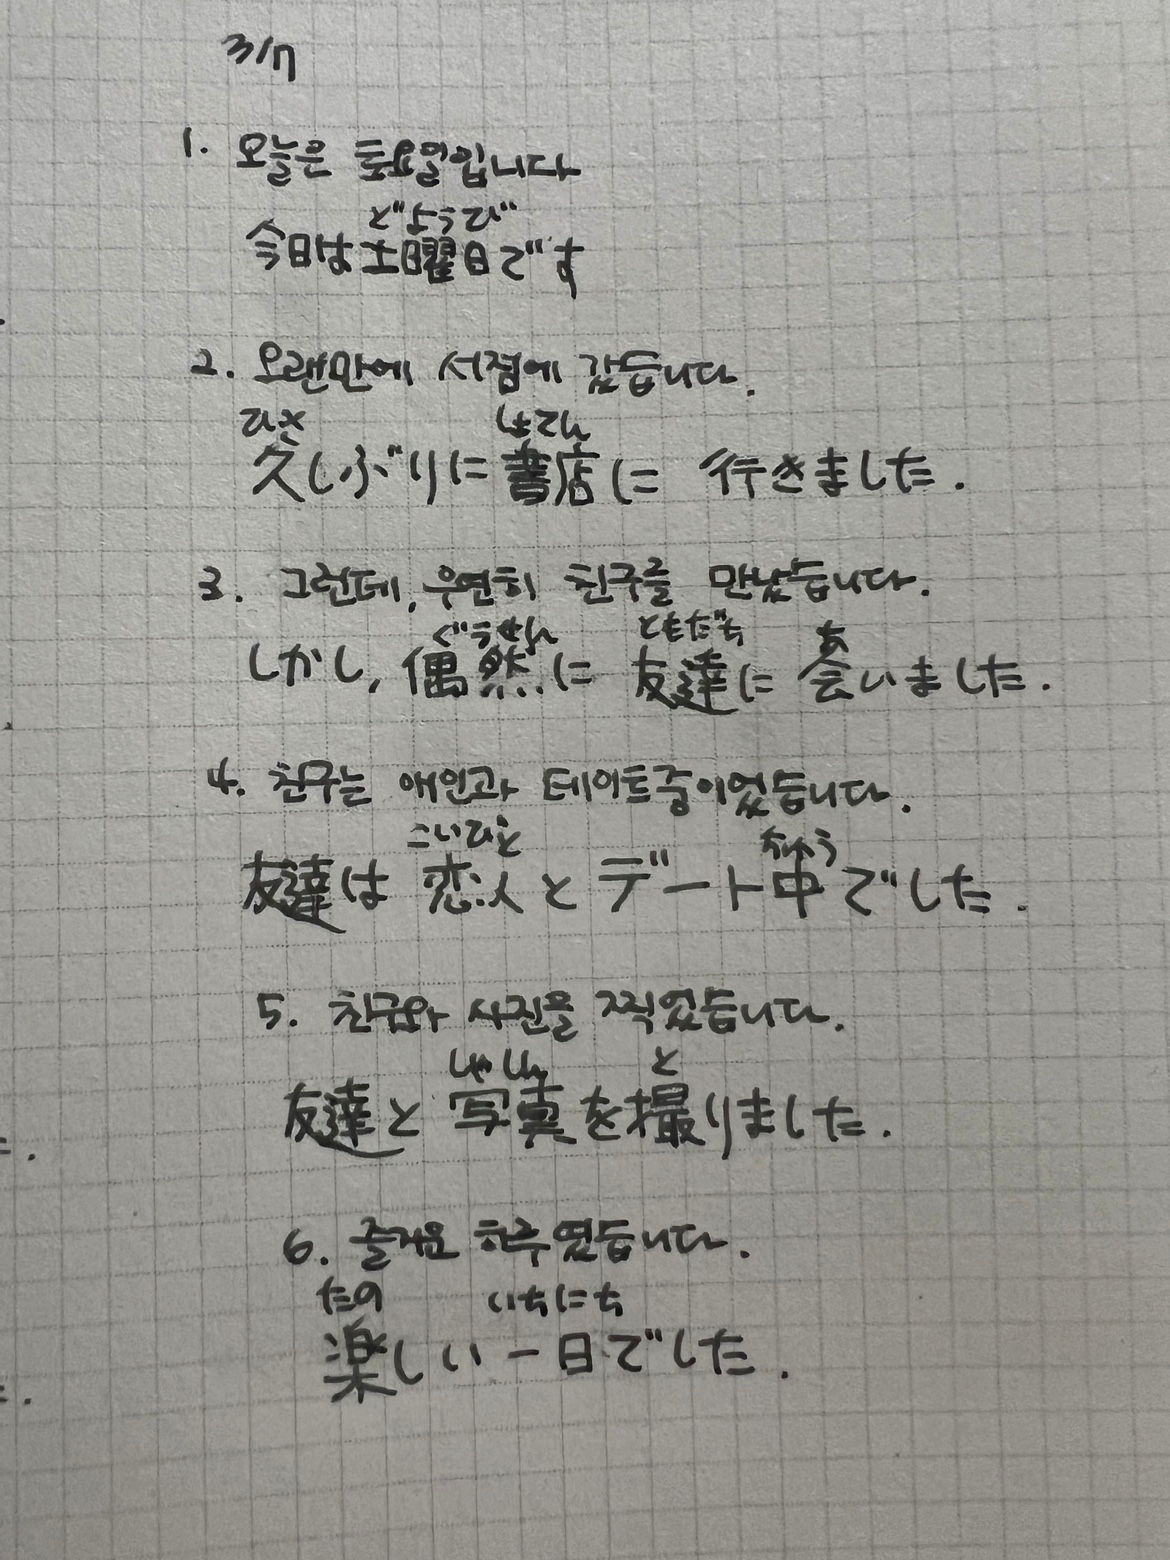 3/7
1. 오늘은 토요일입니다
どようび
今日は土曜日です
2. 오랜만에 서점에 갔습니다.
ひさ しょてん
久しぶりに書店に 行きました.
3. 그런데, 우연히 친구를 만났습니다.
ぐうぜん ともだち あ
しかし, 偶然に 友達に 会いました.
4. 친구는 애인과 데이트중이었습니다.
こいびと ちゅう
友達は 恋人と デート中でした.
5. 친구와 사진을 찍었습니다.
しゃしん と
友達と 写真を撮りました.
6. 즐거운 하루였습니다.
たの いちにち
楽しい一日でした.